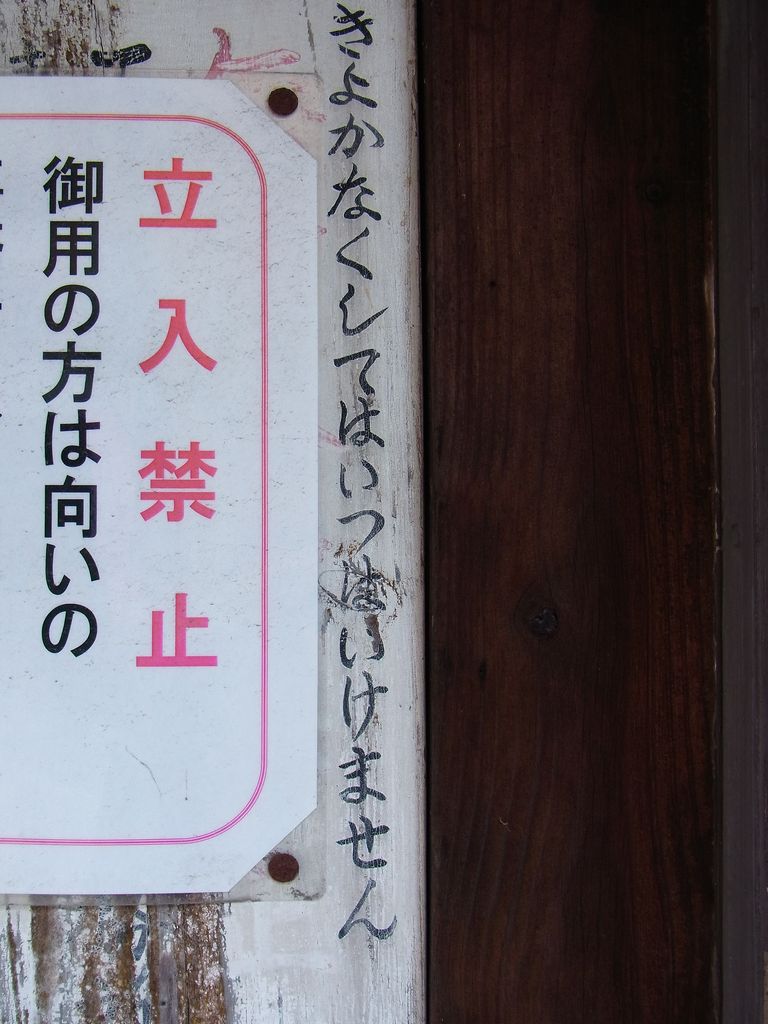 きよかなくしてはいつはいけません
立入禁止
御用の方は向いの